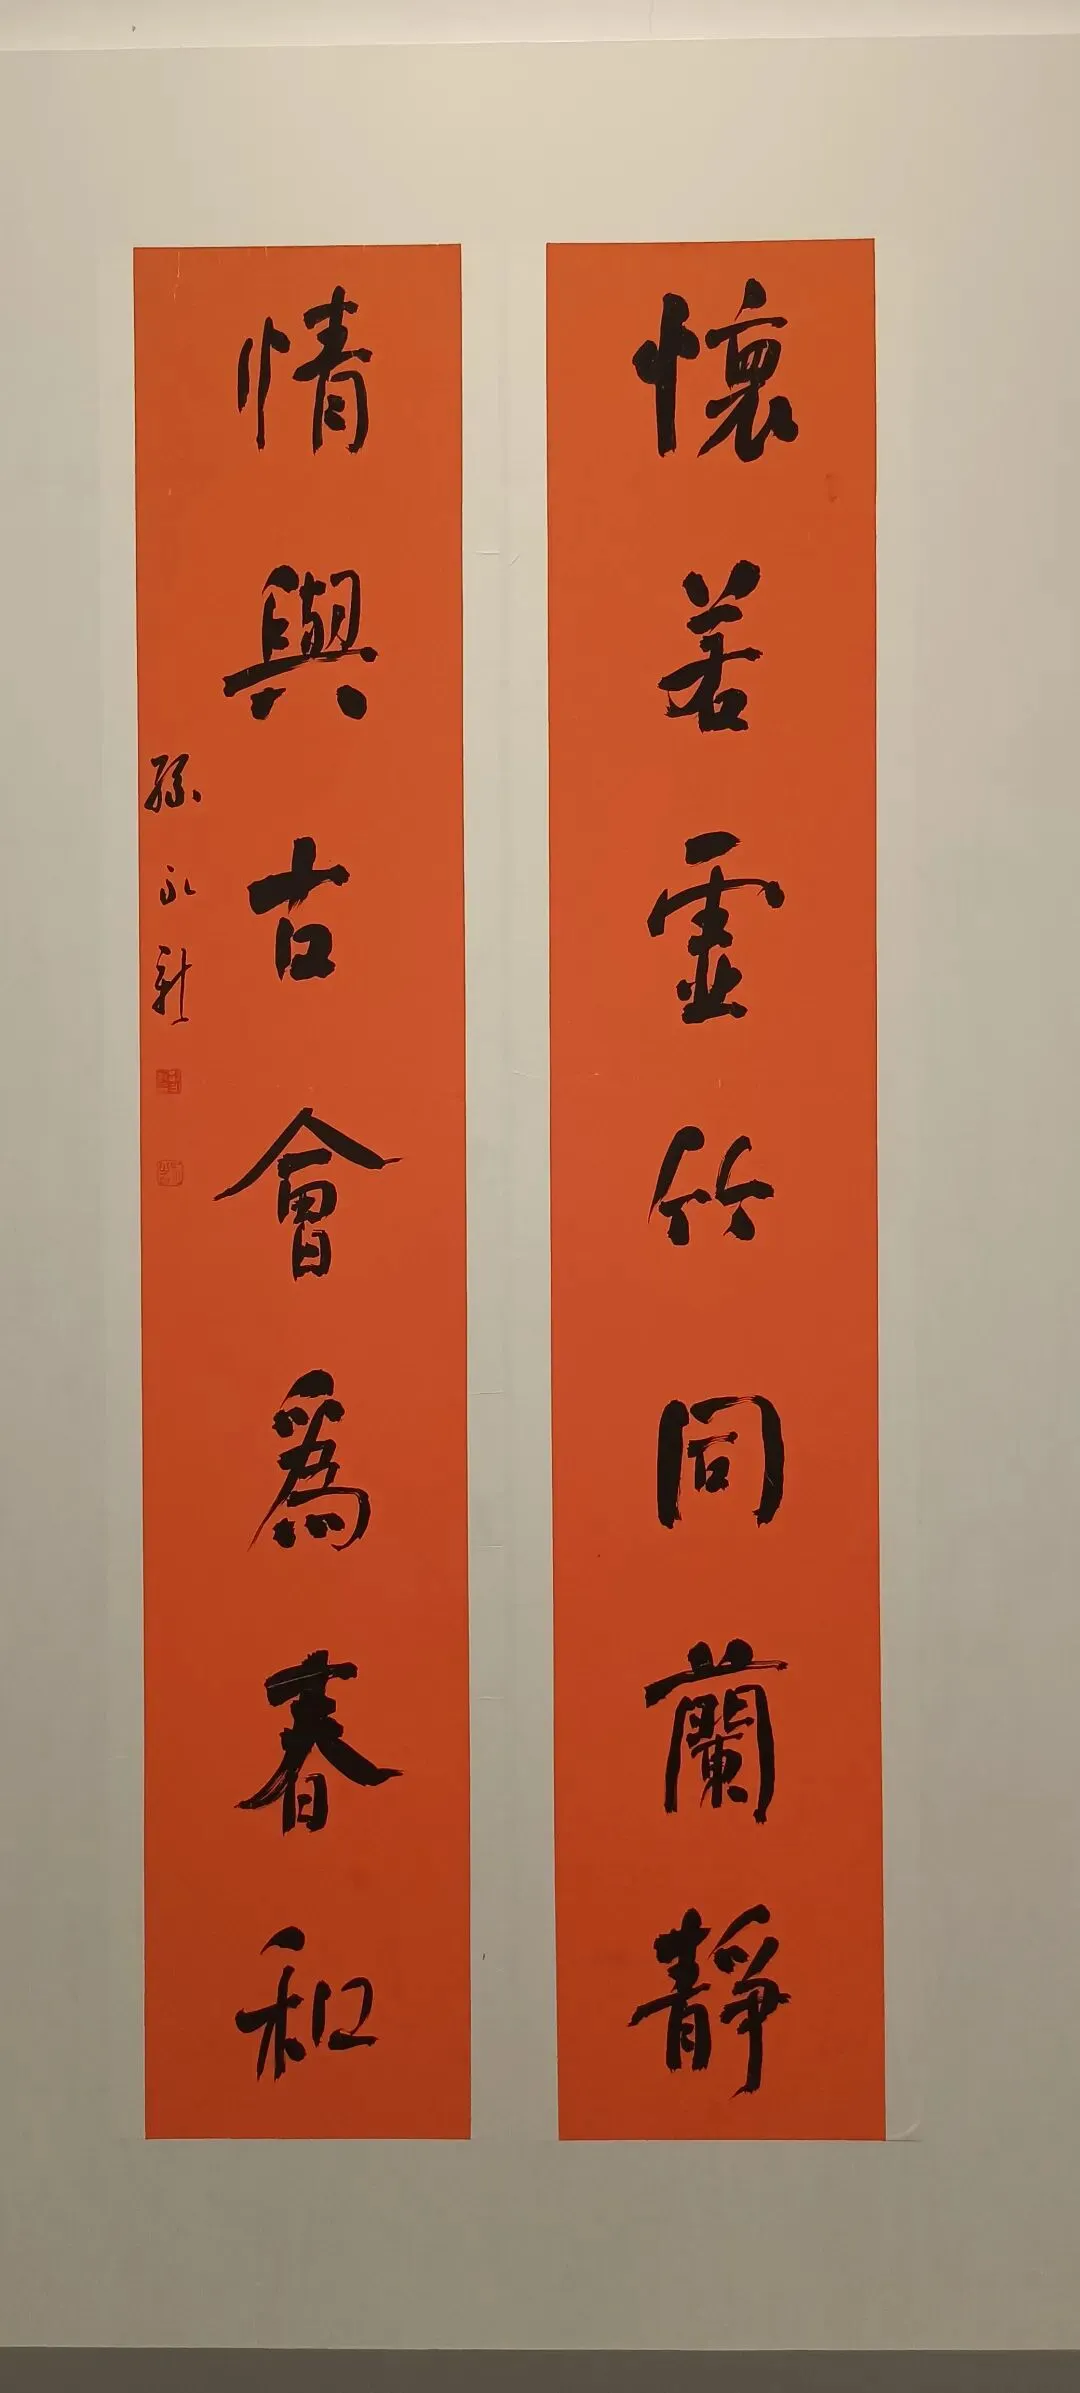 懷若虛竹同蘭靜
情與古會爲春和
孫永新